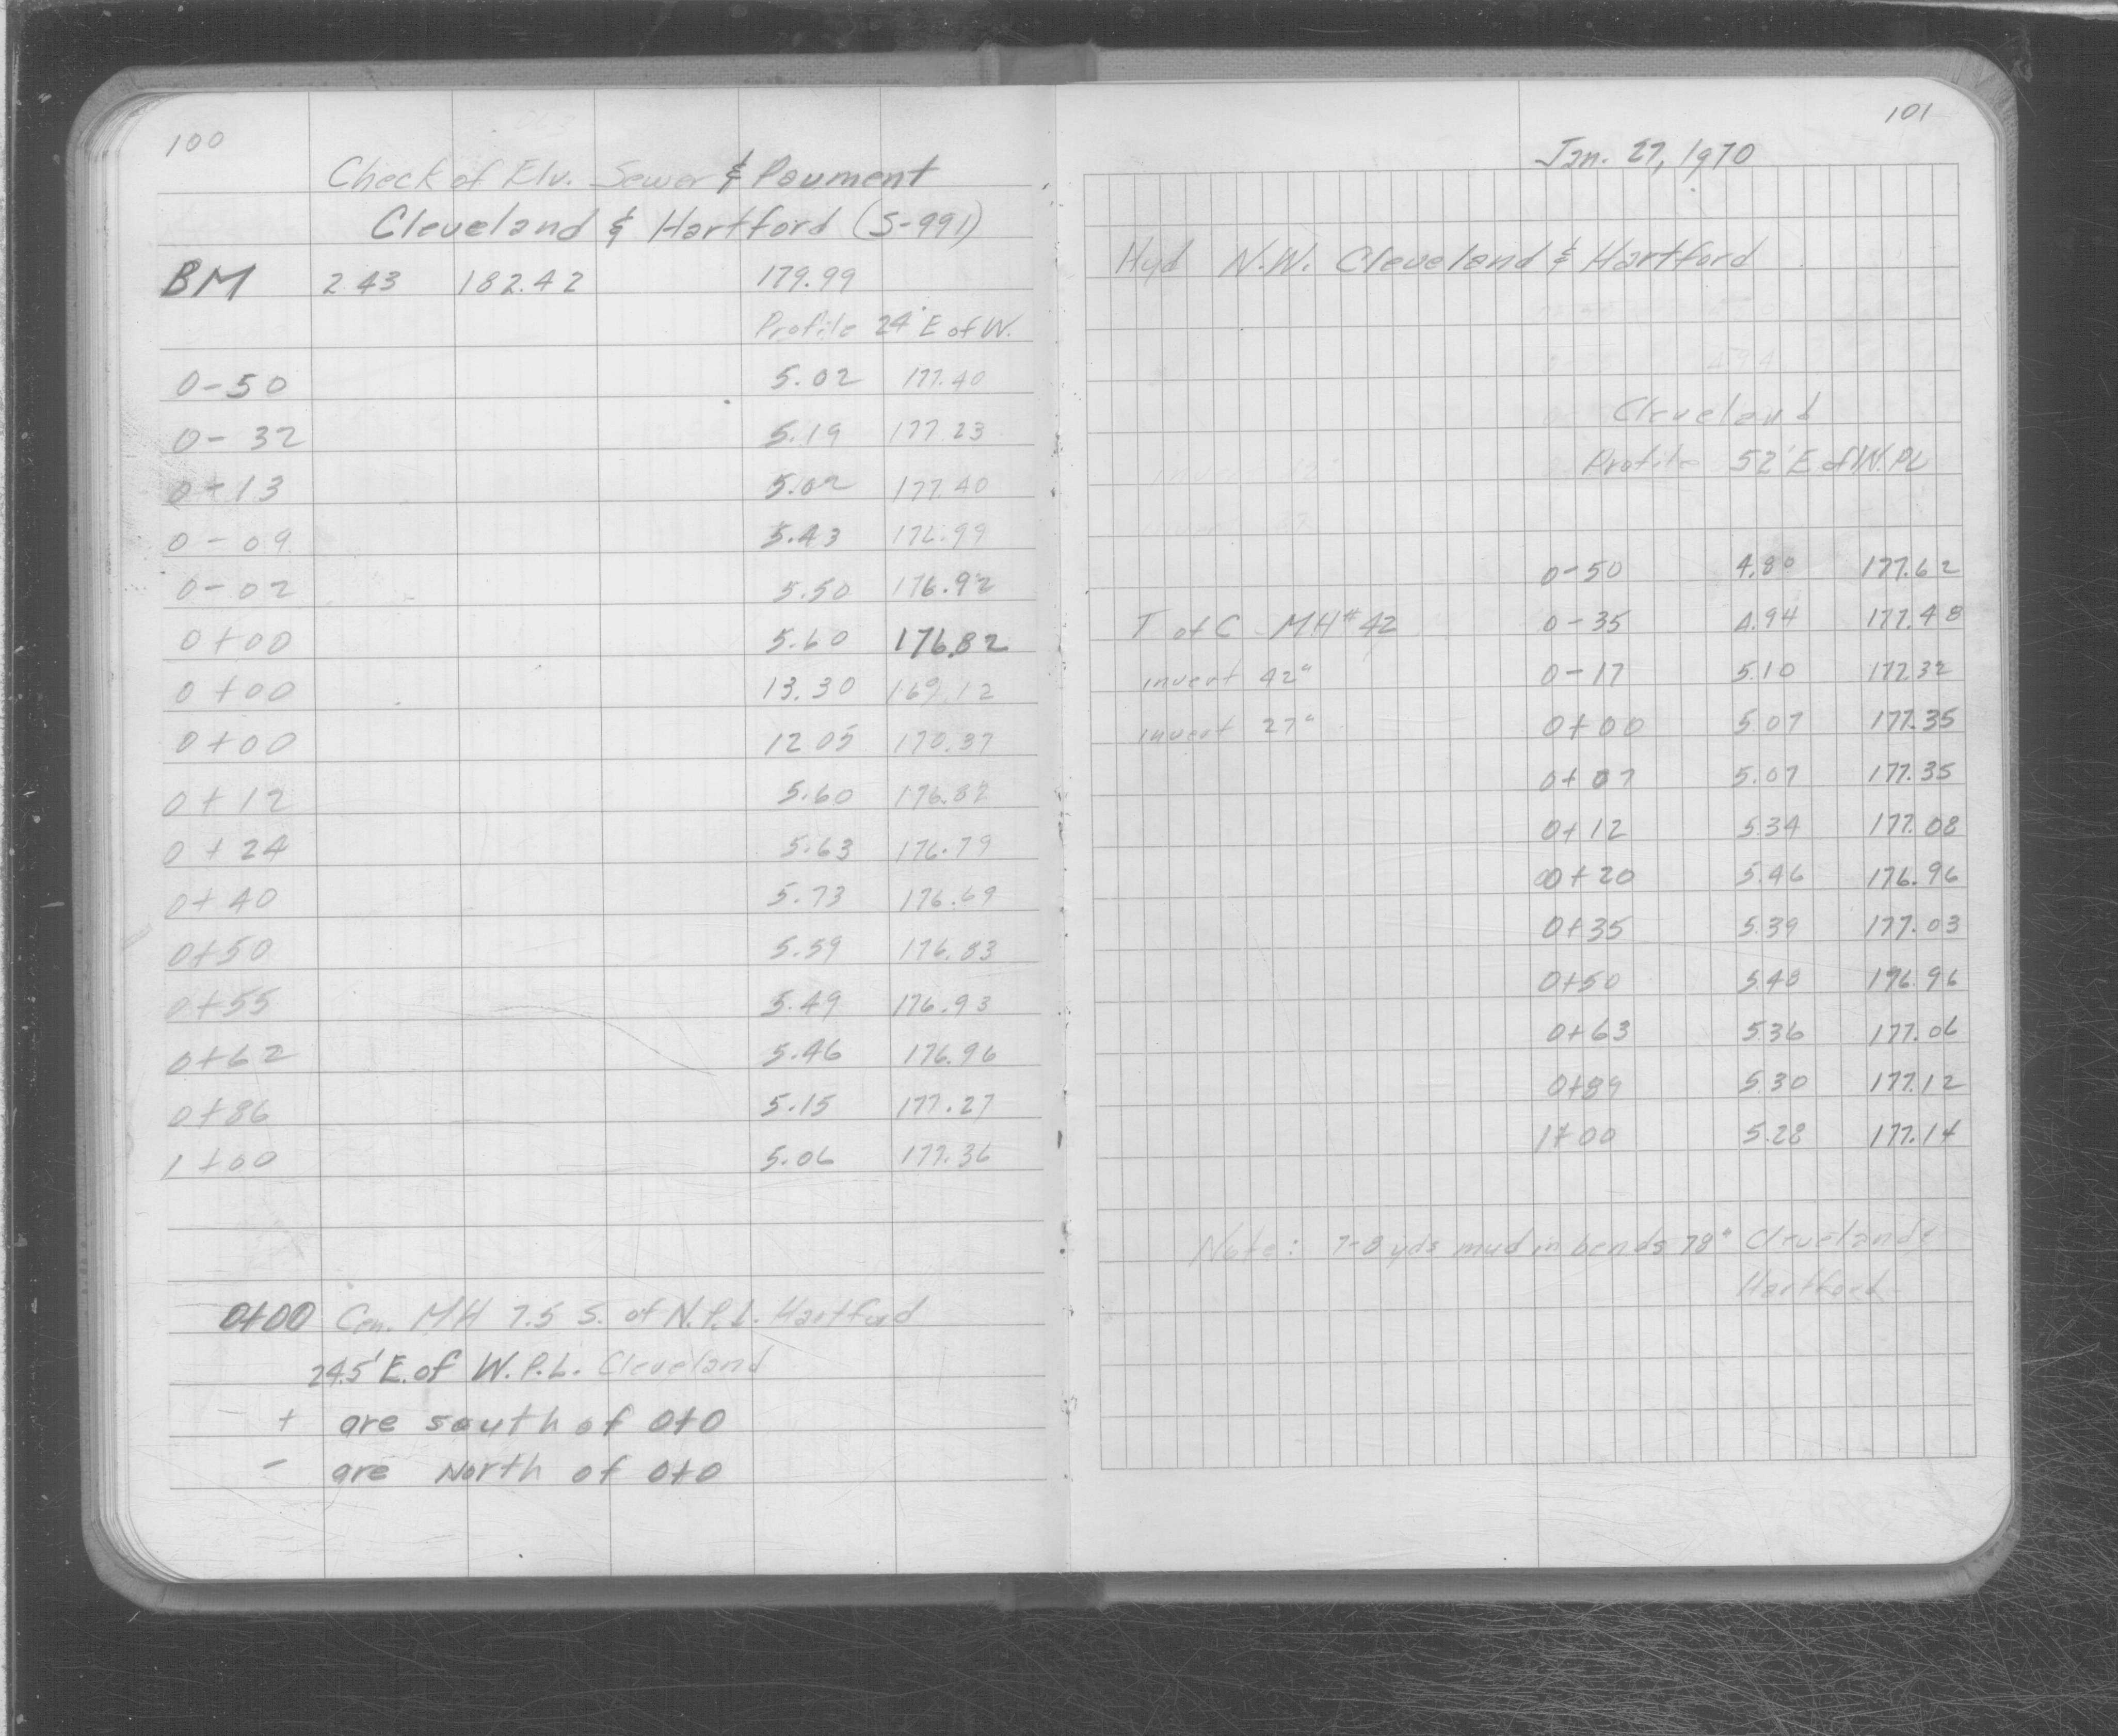 100
Check of Elv. Sewer & Paument
Cleveland & Hartford (S-991)
BM 2.43 182.42 179.99
Profile 24' E of W.
0-50 5.02 177.40
0-32 5.19 177.23
0-13 5.02 177.40
0-09 5.43 176.99
0-02 5.50 176.92
0+00 5.60 176.82
0+00 13.30 169.12
0+00 12.05 170.37
0+12 5.60 176.82
0+24 5.63 176.79
0+40 5.73 176.69
0+50 5.59 176.83
0+55 5.49 176.93
0+62 5.46 176.96
0+86 5.15 177.27
1+00 5.06 177.36
0+00 Cen. MH 7.5 S. of N.P.L. Hartford
24.5' E. of W.P.L. Cleveland
+ are south of 0+0
- are North of 0+0
101
Jan. 27, 1970
Hyd N.W. Cleveland & Hartford
Cleveland
Profile 52' E of W. PL
0-50 4.80 177.62
T of C - MH # 42 0-35 4.94 177.48
invert 42" 0-17 5.10 177.32
invert 27" 0+00 5.07 177.35
0+07 5.07 177.35
0+12 5.34 177.08
0+20 5.46 176.96
0+35 5.39 177.03
0+50 5.48 176.96
0+63 5.36 177.06
0+89 5.30 177.12
1+00 5.28 177.14
Note: 7-8 yds mud in bends 78" Cleveland &
Hartford